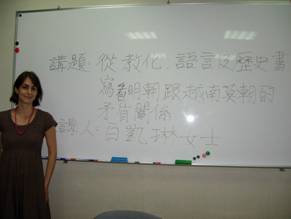 講題:從教化、語言及歷史書
寫看明朝跟越南莫朝的
矛盾關係
講人:白凱琳女士